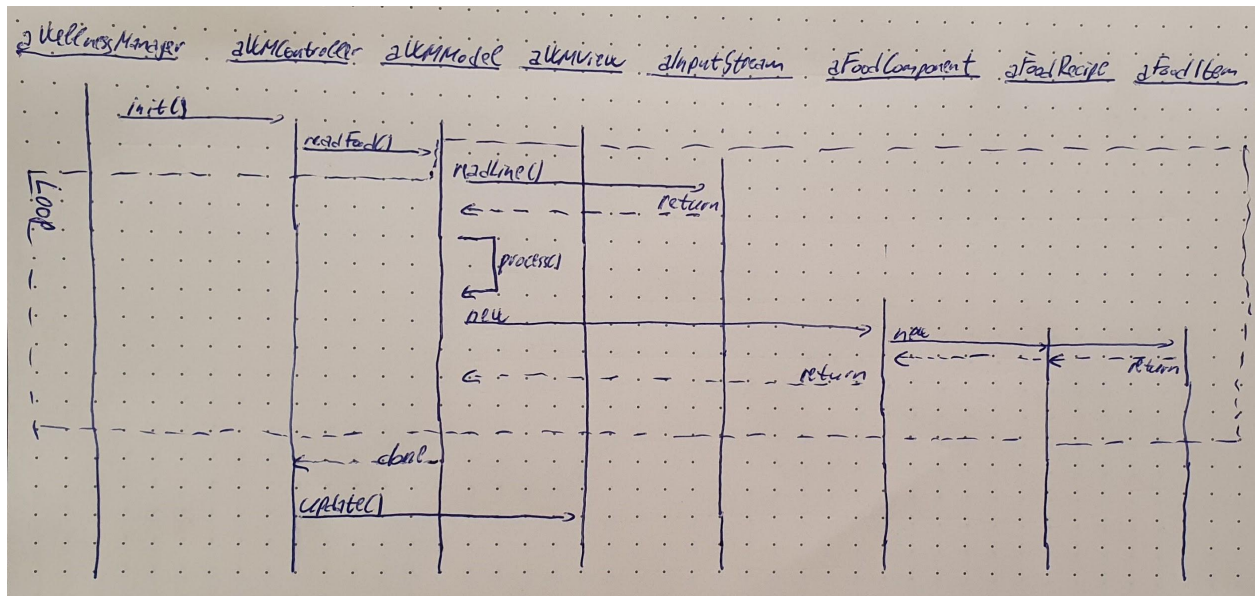 aWellnessManager aWMController aWMModel aWMView aInputStream aFoodComponent aFoodRecipe aFoodItem
init()
readFood()
readLine()
Loop
return
process()
new
new
return
return
done
update()